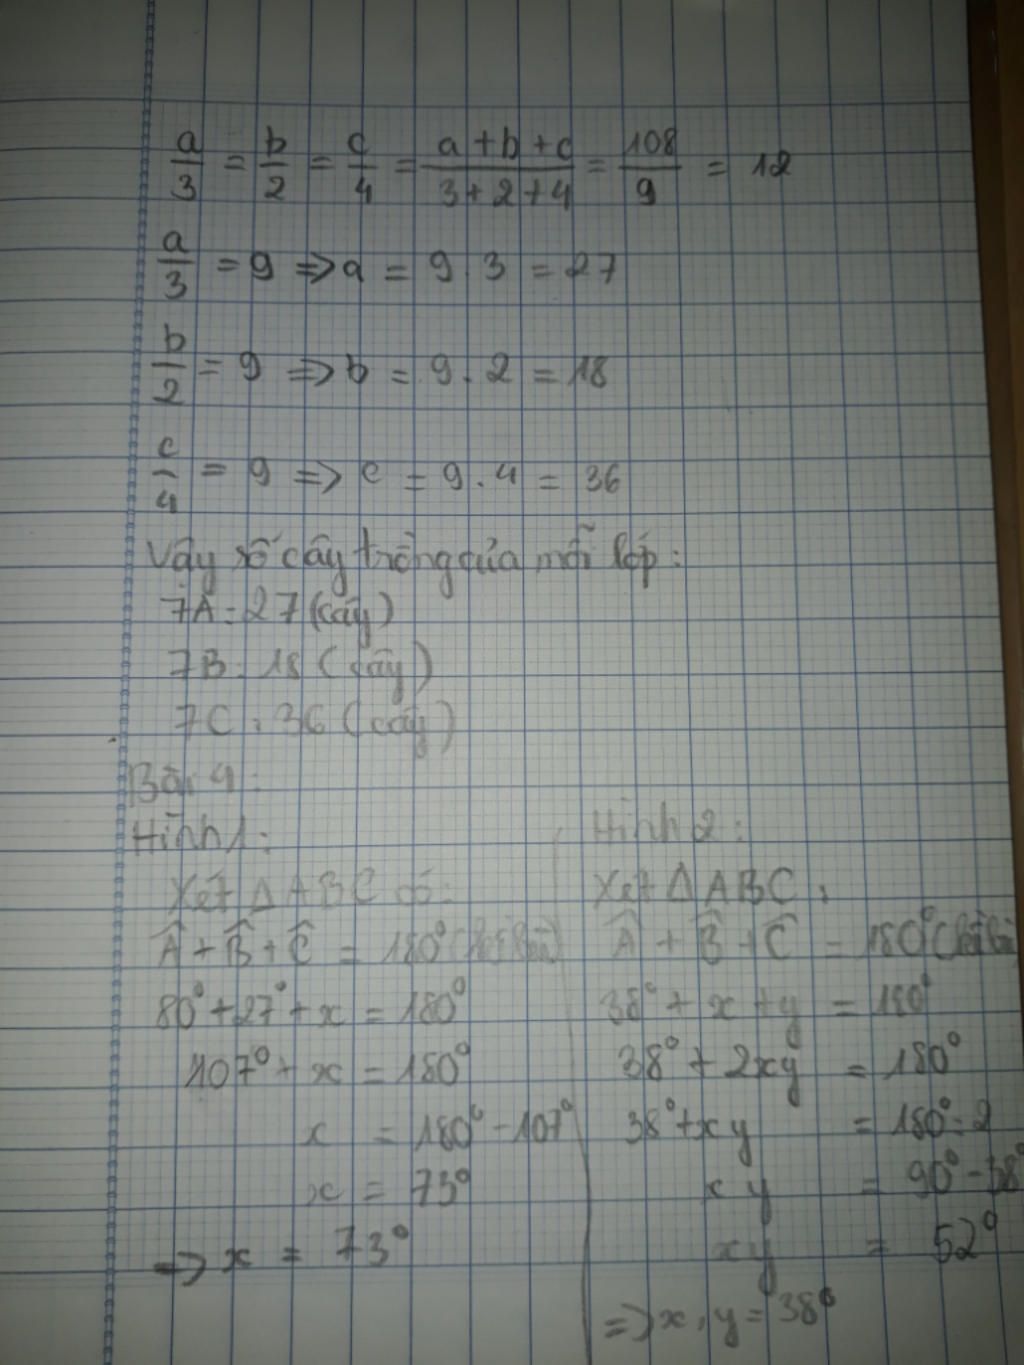 a/3 = b/2 = c/4 = (a+b+c)/(3+2+4) = 108/9 = 12
a/3 = 9 => a = 9.3 = 27
b/2 = 9 => b = 9.2 = 18
c/4 = 9 => c = 9.4 = 36
Vậy số cây trồng của mỗi lớp:
7A: 27 (cây)
7B: 18 (cây)
7C: 36 (cây)
Bài 4:
Hình 1:
Xét ΔABC có:
Â + B̂ + Ĉ = 180°
80° + 27° + x = 180°
107° + x = 180°
x = 180° - 107°
x = 73°
=> x = 73°
Hình 2:
Xét ΔABC:
Â + B̂ + Ĉ = 180°
38° + x + y = 180°
38° + 2xy = 180°
38° + xy = 180° : 2
xy = 90° - 38°
xy = 52°
=> x, y = 38°